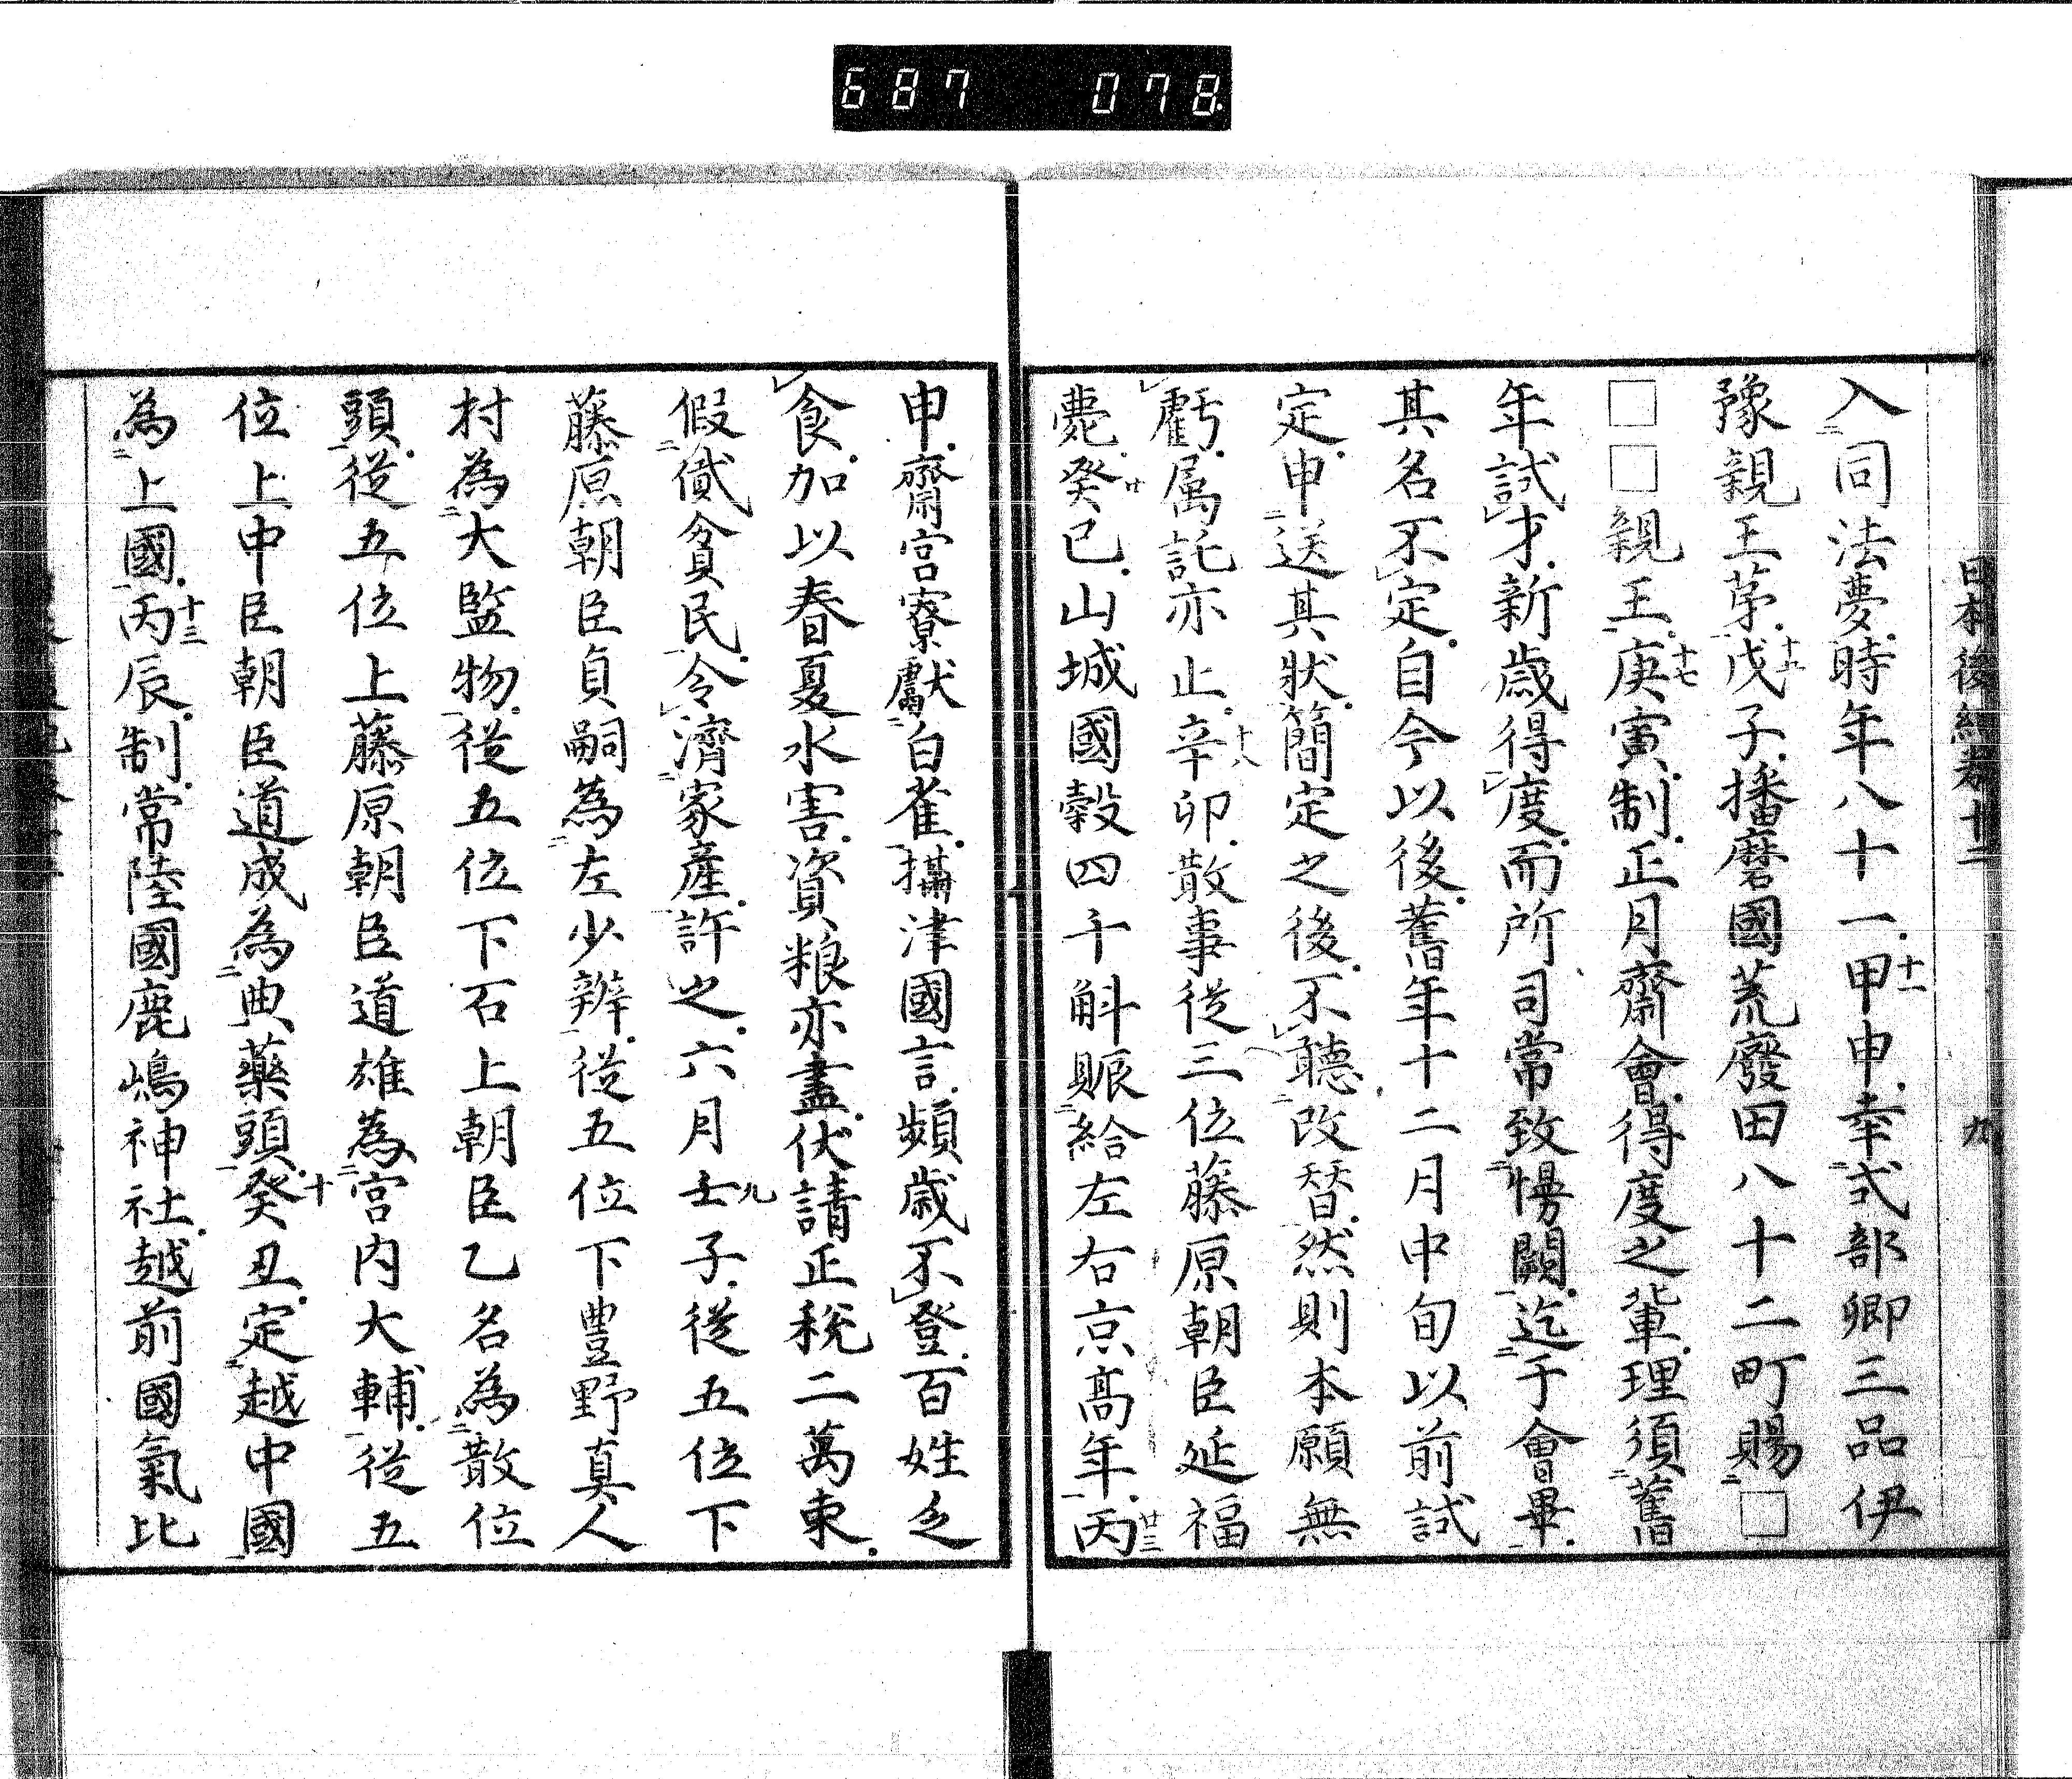 687 078
日本後紀卷十二 九
入同法夢時年八十一甲申幸式部卿三品伊
豫親王苐戊子播磨國荒廢田八十二町賜□
□□親王庚寅制正月齋會得度之輩理須舊
年試才新歲得度而所司常致慢闕迄于會畢
其名不定自今以後舊年十二月中旬以前試
定申送其狀簡定之後不聽改替然則本願無
虧属託亦止辛卯散事從三位藤原朝臣延福
薨癸巳山城國穀四千斛賑給左右京髙年丙
申齋宮寮獻白雀攝津國言頻歲不登百姓乏
食加以春夏水害資粮亦盡伏請正税二萬束
假貸貧民令濟家產許之六月壬子從五位下
藤原朝臣貞嗣為左少辨從五位下豊野真人
村為大監物從五位下石上朝臣乙名為散位
頭從五位上藤原朝臣道雄為宮内大輔從五
位上中臣朝臣道成為典藥頭癸丑定越中國
為上國丙辰制常陸國鹿嶋神社越前國氣比